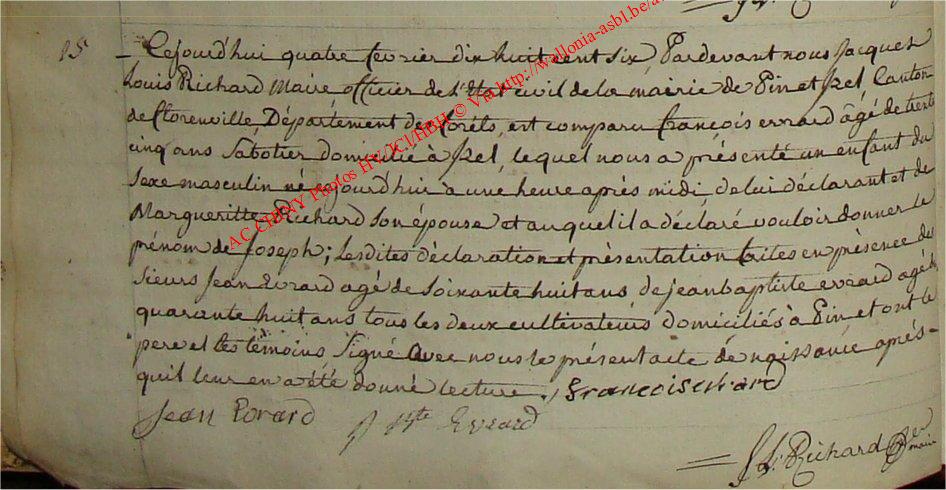 15e
Cejourd'hui quatre fevrier dix huit cent six, Pardevant nous Jacques
Louis Richard Maire officier de l'Etat civil de la mairie de Pin et Izel Canton
de florenville, Département des forêts, est comparu françois evrard âgé de trente
cinq ans Sabotier domicilié à Izel, lequel nous a présenté un enfant du
Sexe masculin né jourd'hui à une heure après midi de lui déclarant et de
Margueritte Richard Son épouse et auquel il a déclaré vouloir donner le
prénom de Joseph; Lesdites déclaration et présentation faites en présence des
Sieurs Jean Evrard agé de Soixante huit ans de jean baptiste evrard agé de
quarante huit ans tous les deux cultivateurs domiciliés à Pin et ont le
pere et les témoins Signé avec nous le présent acte de naissance après
qu'il leur en a été donné lecture. francois evrard
Jean Evrard J Bte Evrard
J L. Richard
maire
AC CHINY Photos HV/JCJ/HBH © Via http://wallonia-asbl.be/a